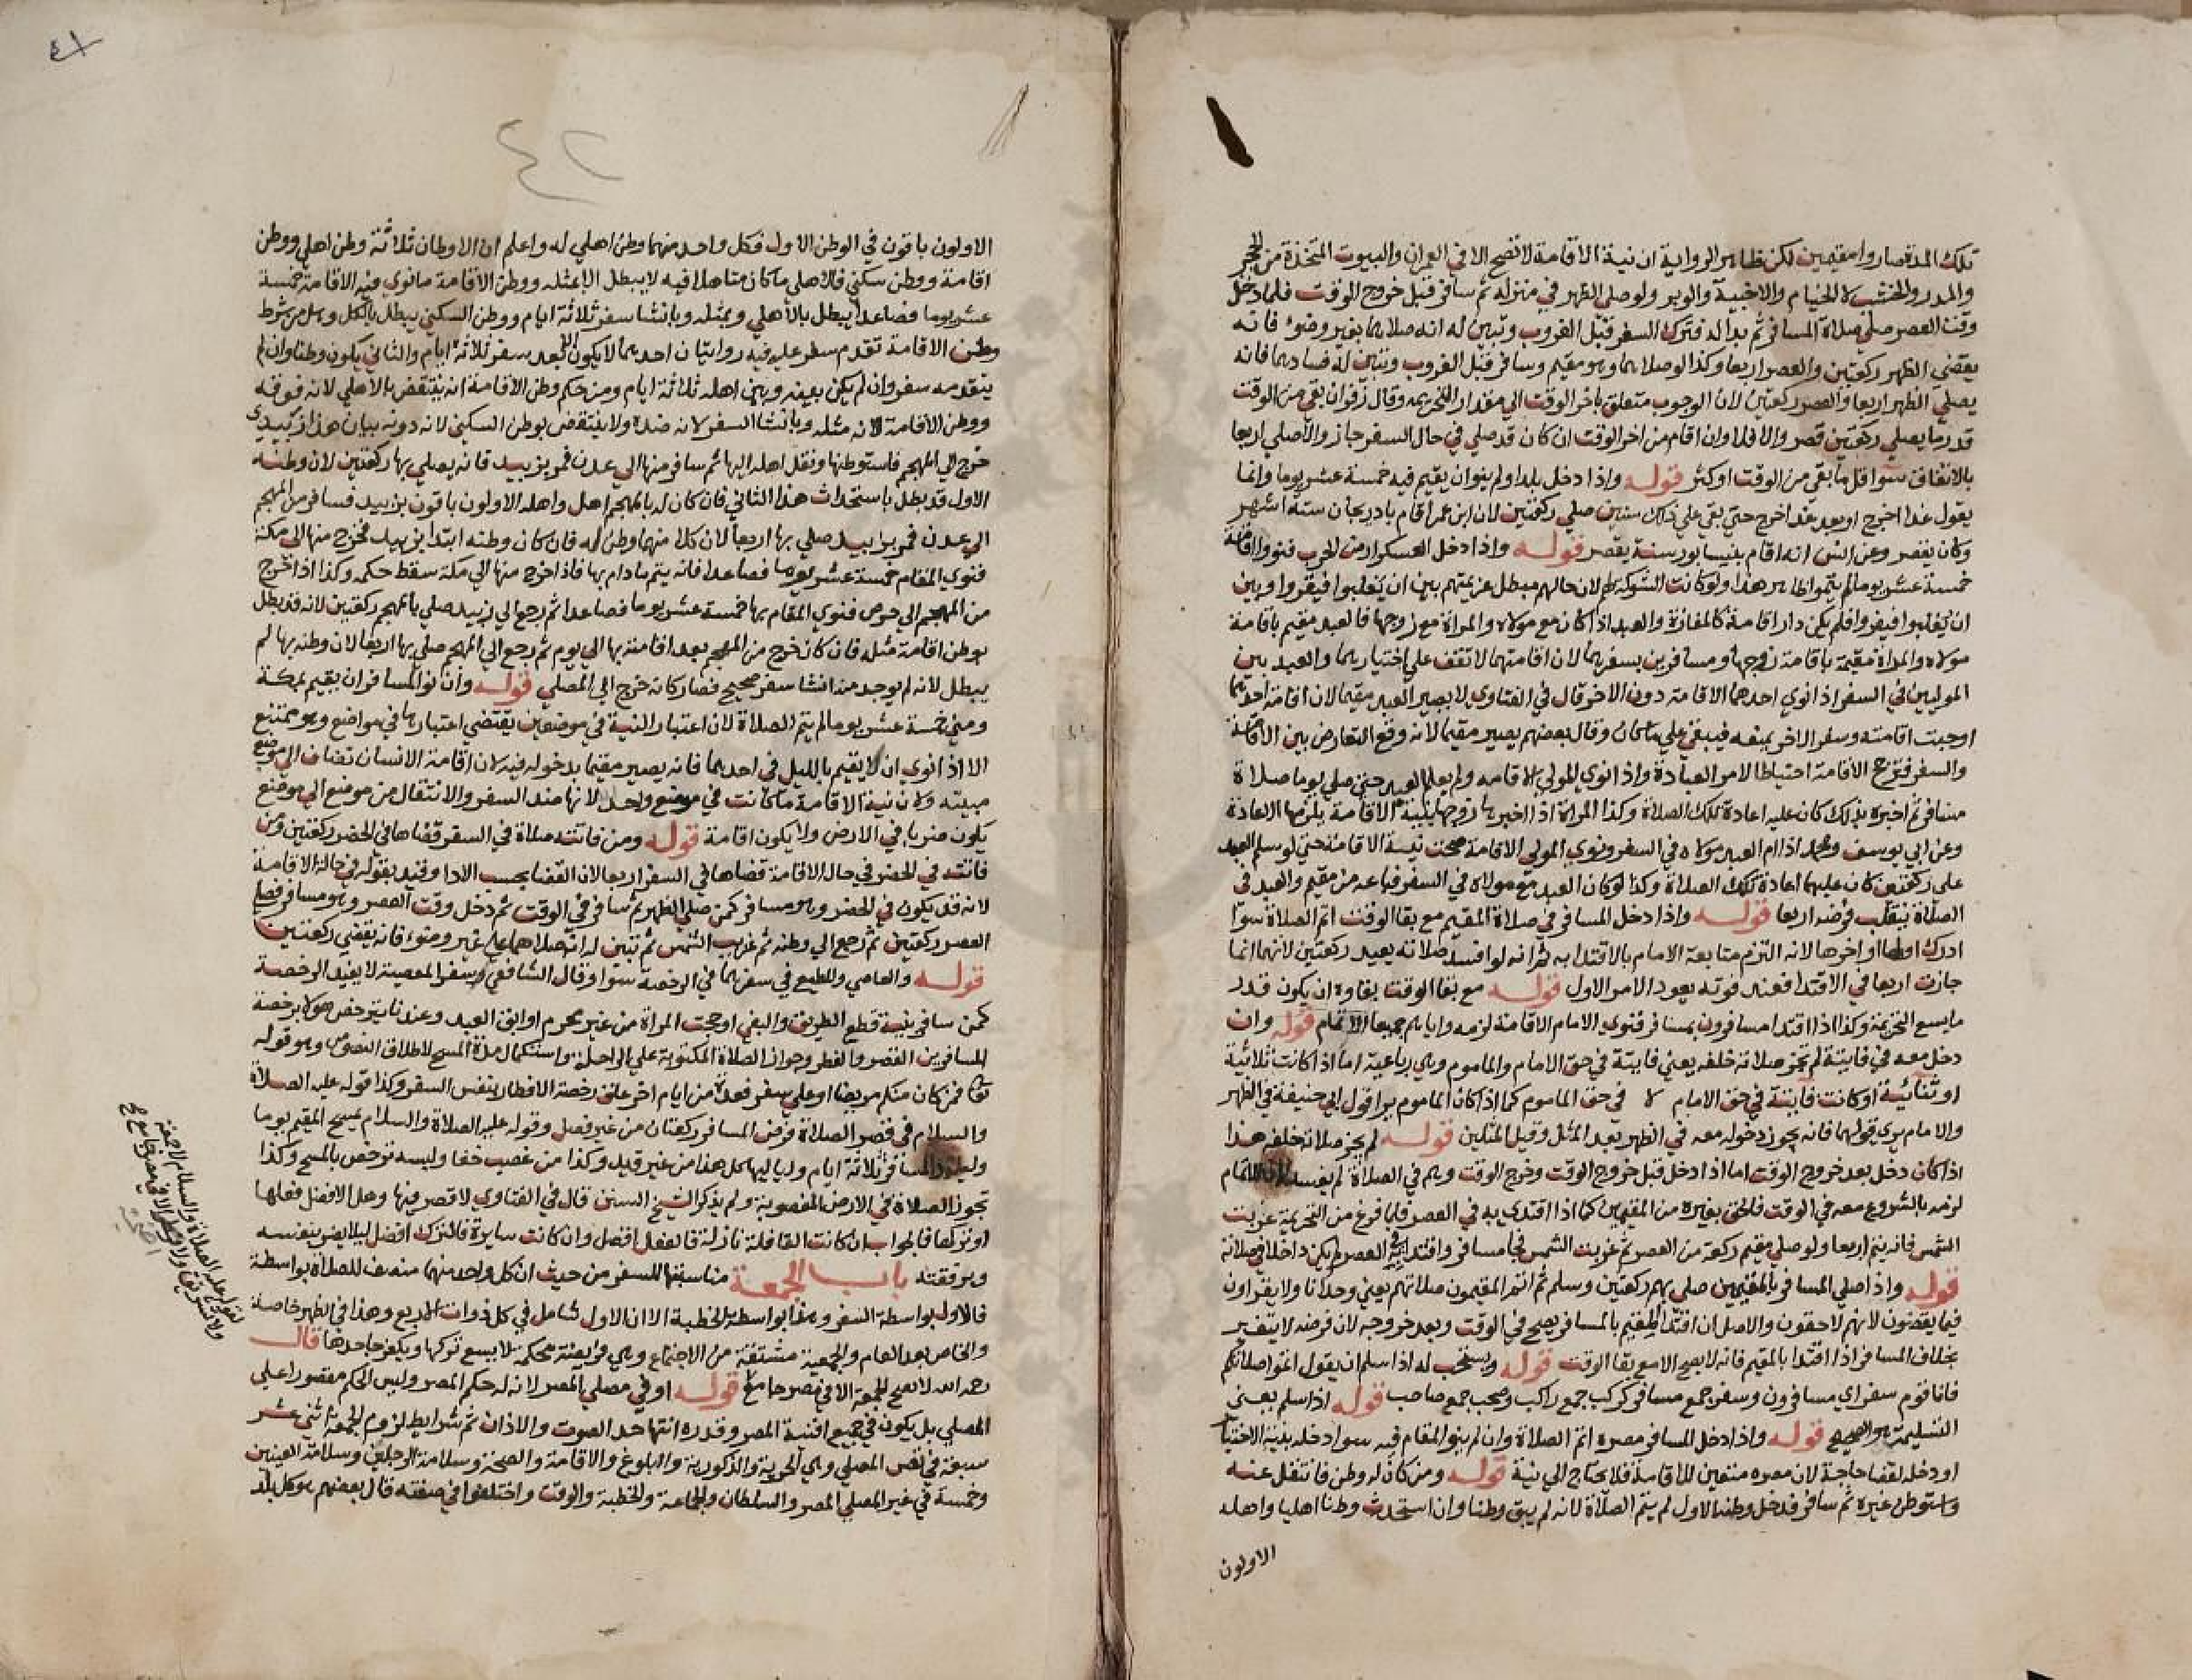 تلك المدة صاروا مقيمين لكن ظاهر الرواية ان نية الاقامة لا تصح الا في العمران والبيوت المتخذة من الحجر
والمدر والخشب لا الخيام والاخبية والوبر ولو صلى الظهر في منزله ثم سافر قبل خروج الوقت فلما دخل
وقت العصر صلى صلاة المسافر ثم بدا له فترك السفر قبل الغروب وتبين له انه صلاهما بغير وضوء فانه
يقضي الظهر ركعتين والعصر اربعا وكذا لو صلاهما وهو مقيم وسافر قبل الغروب وتبين له فسادهما فانه
يصلي الظهر اربعا والعصر ركعتين لان الوجوب متعلق باخر الوقت الي مقدار التحريمه وقال زفر ان بقي من الوقت
قدر ما يصلي ركعتين قصر والا فلا وان اقام من اخر الوقت ان كان قد صلي في حال السفر جاز والا صلي اربعا
بالاتفاق سوا قل ما بقي من الوقت او كثر قوله واذا دخل بلدا ولم ينو ان يقيم فيه خمسة عشر يوما وانما
يقول غدا اخرج او بعد غد اخرج حتي بقي علي ذلك سنين صلي ركعتين لان ابن عمر اقام بادربجان ستة اشهر
وكان يقصر وعن انس انه اقام بنيسابور سنة يقصر قوله واذا دخل العسكر ارض الحرب فنووا اقامة
خمسة عشر يوما لم يتموا ظاهر هذا ولو كانت الشوكة لهم لان حالهم مبطل عزيمتهم بين ان يغلبوا فيقروا وبين
ان يغلبوا فيفروا فلم يكن دار اقامة كالمفازة والعبد اذا كان مع مولاه والمراة مع زوجها فالعبد مقيم باقامة
مولاه والمراة مقيمة باقامة زوجها ومسافرين بسفرهما لان اقامتهما لا تقف علي اختيارهما والعبد بين
الموليين في السفر اذا نوي احدهما الاقامة دون الاخر قال في الفتاوي لا يصير العبد مقيما لان اقامة احدهما
اوجبت اقامته وسفر الاخر يمنعه فيبقي علي ما كان وقال بعضهم يصير مقيما لانه وقع التعارض بين الاقامة
والسفر فترجح الاقامة احتياطا لامر العبادة واذا نوي المولي الاقامه ولم يعلم العبد حتي صلي يوما صلاة
مسافر ثم اخبره بذلك كان عليه اعادة تلك الصلاة وكذا المراة اذا اخبرها زوجها بنية الاقامة يلزمها الاعادة
وعن ابي يوسف ومحمد اذا ام العبد مولاه في السفر ونوي المولي الاقامة صحت نية الاقامة حتي لو سلم العبد
علي ركعتين كان عليهما اعادة تلك الصلاة وكذا لو كان العبد مع مولاه في السفر فباعه من مقيم والعبد في
الصلاة ينقلب فرضه اربعا قوله واذا دخل المسافر في صلاة المقيم مع بقا الوقت اتم الصلاة سوا
ادرك اولها او اخرها لانه التزم متابعة الامام بالاقتدا به ثم انه لو افسد صلاته يعيد ركعتين لانهما انما
جازت اربعا في الاقتدا فعند فوته يعود الامر الاول قوله مع بقا الوقت بقاوه ان يكون قدر
ما يسع التحريمة وكذا اذا اقتدا مسافرون بمسافر فنوي الامام الاقامة لزمه واياهم جميعا الاتمام قوله وان
دخل معه في فايتة لم تجز صلاته خلفه يعني فايتة في حق الامام والماموم وهي رباعية اما اذا كانت ثلاثية
او ثنائية او كانت فايتة في حق الامام لا في حق الماموم كما اذا كان الماموم يرا قول ابي حنيفة في الظهر
والامام يري قولهما فانه يجوز دخوله معه في الظهر بعد المثل وقبل المثلين قوله لم يجز صلاته خلفه هذا
اذا كان دخل بعد خروج الوقت اما اذا دخل قبل خروج الوقت وخرج الوقت وهم في الصلاة لم يفسد لان الاتمام
لزمه بالشروع معه في الوقت فالحق بغيره من المقيمين كما اذا اقتدي به في العصر فلما فرغ من التحريمة غربت
الشمس فانه يتم اربعا ولو صلي مقيم ركعة من العصر ثم غربت الشمس فجا مسافر واقتدا به في العصر لم يكن داخلا في صلاته
قوله واذا صلي المسافر بالمقيمين صلي بهم ركعتين وسلم ثم اتم المقيمون صلاتهم يعني وحدانا ولا يقراون
فيما يقضون لانهم لاحقون والاصل ان اقتدا المقيم بالمسافر يصح في الوقت وبعد خروجه لان فرضه لا يتغير
بخلاف المسافر اذا اقتدا بالمقيم فانه لا يصح الا مع بقا الوقت قوله ويستحب له اذا سلم ان يقول اتموا صلاتكم
فانا قوم سفر اي مسافرون وسفر جمع مسافر كركب جمع راكب وصحب جمع صاحب قوله اذا سلم يعني
التسليمة هو الصحيح قوله واذا دخل المسافر مصره اتم الصلاة وان لم ينو المقام فيه سوا دخله بنية الاختيار
او دخله لقضا حاجة لان مصره متعين للاقامة فلا يحتاج الي نية قوله ومن كان له وطن فانتقل عنه
واستوطن غيره ثم سافر فدخل وطنه الاول لم يتم الصلاة لانه لم يبق وطنا وان استحدث وطنا اهليا واهله
الاولون
٤١
٤٢
الاولون باقون في الوطن الاول فكل واحد منهما وطن اهلي له واعلم ان الاوطان ثلاثة وطن اهلي ووطن
اقامة ووطن سكني فالاهلي ما كان متاهلا فيه لا يبطل الا بمثله ووطن الاقامة ما نوي فيه الاقامة خمسة
عشر يوما فصاعدا يبطل بالاهلي وبمثله وبانشا سفر ثلاثة ايام ووطن السكني يبطل بالكل وهل من شرط
وطن الاقامة تقدم سفر عليه فيه روايتان احدهما لا يكون الا بعد سفر ثلاثة ايام والثاني يكون وطنا وان لم
يتقدمه سفر وان لم يكن بينه وبين اهله ثلاثة ايام ومن حكم وطن الاقامة انه ينتقض بالاهلي لانه فوقه
ووطن الاقامة لانه مثله وبانشا السفر لانه ضده ولا ينتقض بوطن السكني لانه دونه بيان هذا زبيدي
خرج الي المهجم فاستوطنها ونقل اهله اليها ثم سافر منها الي عدن فمر بزبيد فانه يصلي بها ركعتين لان وطنه
الاول قد بطل باستحداث هذا الثاني فان كان له بالمهجم اهل واهله الاولون باقون بزبيد فسافر من المهجم
الي عدن فمر بزبيد صلي بها اربعا لان كلا منهما وطن له فان كان وطنه ابتدا بزبيد فخرج منها الي مكة
فنوي المقام خمسة عشر يوما فصاعدا فانه يتم ما دام بها فاذا خرج منها الي مكة سقط حكمه وكذا اذا خرج
من المهجم الي حرض فنوي المقام بها خمسة عشر يوما فصاعدا ثم رجع الي زبيد صلي بالمهجم ركعتين لانه قد بطل
بوطن اقامة مثله فان كان خرج من المهجم بعد اقامته بها الي يوم ثم رجع الي المهجم صلي بها اربعا لان وطنه بها لم
يبطل لانه لم يوجد منه انشا سفر صحيح فصار كانه خرج الي المصلي قوله وان نوا المسافر ان يقيم بمكة
ومني خمسة عشر يوما لم يتم الصلاة لان اعتبار النية في موضعين يقتضي اعتبارها في مواضع وهو ممتنع
الا اذا نوي ان يقيم بالليل في احدهما فانه يصير مقيما بدخوله فيه لان اقامة الانسان تضاف الي موضع
مبيته ولان نية الاقامة ما كانت في موضع واحد لانها ضد السفر والانتقال من موضع الي موضع
يكون ضربا في الارض ولا يكون اقامة قوله ومن فاتته صلاة في السفر قضاها في الحضر ركعتين ومن
فاتته في الحضر في حال الاقامة قضاها في السفر اربعا لان القضا بحسب الادا وقيد بقوله في حالة الاقامة
لانه قد يكون في الحضر وهو مسافر كمن صلي الظهر ثم سافر في الوقت ثم دخل وقت العصر وهو مسافر فصلي
العصر ركعتين ثم رجع الي وطنه ثم غربت الشمس ثم تبين له انه صلاهما علي غير وضوء فانه يقضي ركعتين
قوله والعاصي والمطيع في سفرهما في الرخصة سوا وقال الشافعي سفر المعصية لا يفيد الرخصة
كمن سافر بنية قطع الطريق والبغي او حجت المراة من غير محرم او ابق العبد وعندنا يترخص هولا برخصة
المسافرين القصر والفطر وجواز الصلاة المكتوبة علي الراحلة واستكمال مدة المسح لاطلاق النصوص وهو قوله
تعا فمن كان منكم مريضا او علي سفر فعدة من ايام اخر علق رخصة الافطار بنفس السفر وكذا قوله عليه الصلاة
والسلام في قصر الصلاة فرض المسافر ركعتان من غير فصل وقوله عليه الصلاة والسلام يمسح المقيم يوما
وليلة والمسافر ثلاثة ايام ولياليها كل هذا من غير قيد وكذا من غصب خفا ولبسه ترخص بالمسح وكذا
تجوز الصلاة في الارض المغصوبة ولم يذكر الشيخ السنن قال في الفتاوي لا قصر فيها وهل الافضل فعلها
او تركها فالجواب ان كانت القافلة نازلة فالفعل افضل وان كانت سايرة فالترك افضل ليلا يضر بنفسه
وبرفقته باب الجمعة مناسبتها للسفر من حيث ان كل واحد منهما منصف للصلاة بواسطة
فالاول بواسطة السفر وهذا بواسطة الخطبة الا ان الاول شامل في كل ذوات الاربع وهذا في الظهر خاصة
والخاص بعد العام والجمعة مشتقة من الاجتماع وهي فريضة محكمة لا يسع تركها ويكفر جاحدها قال
رحمه الله لا تصح الجمعة الا في مصر جامع قوله او في مصلي المصر لانه له حكم المصر وليس الحكم مقصورا علي
المصلي بل يكون في جميع افنية المصر وقدره انتها حد الصوت والاذان ثم شرايط لزوم الجمعة اثني عشر
سبعة في نفس المصلي وهي الحرية والذكورية والبلوغ والاقامة والصحة وسلامة الرجلين وسلامة العينين
وخمسة في غير المصلي المصر والسلطان والجماعة والخطبة والوقت واختلفوا في صفته قال بعضهم هو كل بلد
لقوله عليه الصلاة والسلام لا جمعة
ولا تشريق ولا اضحى الا في مصر جامع